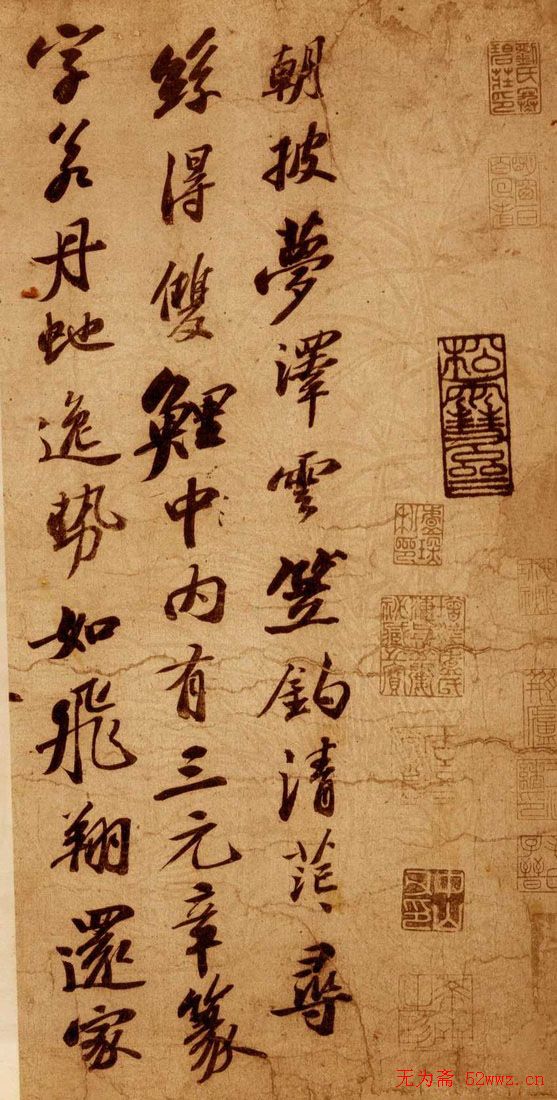 朝披夢澤雲笠釣清茫〻尋
絲得雙鯉中内有三元章篆
字若丹蛇逸勢如飛翔還家
松雪齋
无为斋 52wwz.cn